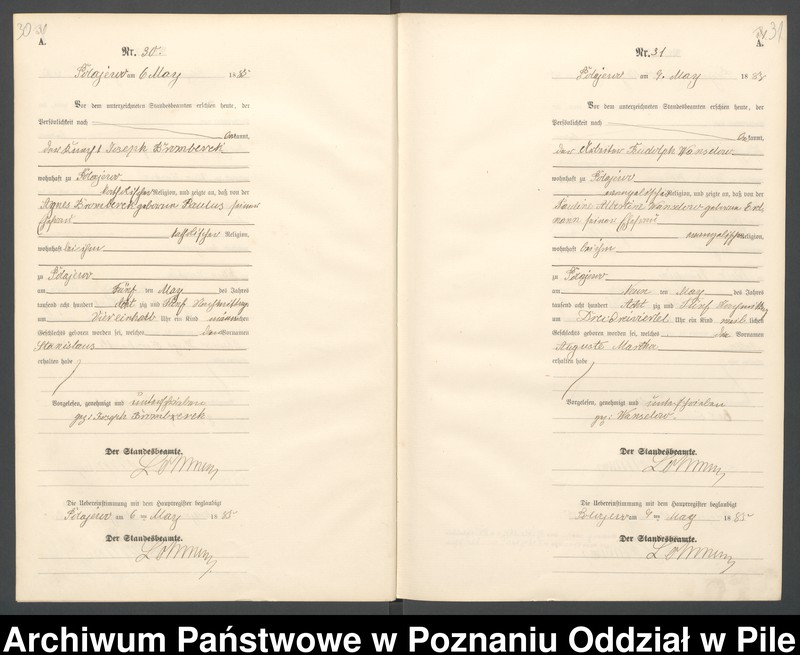 30
A.
Nr. 30
Polajewo am 6 May 1885
Vor dem unterzeichneten Standesbeamten erschien heute, der
Persönlichkeit nach
kannt,
der Joseph Bromberek
wohnhaft zu Polajewo
katholischer Religion, und zeigte an, daß von der
Agnes Bromberek geborenen Paulus seiner
Ehefrau
katholischer Religion,
wohnhaft bei ihm
zu Polajewo
am fünf ten May des Jahres
tausend acht hundert Acht zig und fünf Nachmittags
um Vier einhalb Uhr ein Kind männlichen
Geschlechts geboren worden sei, welches den Vornamen
Stanislaus
erhalten habe
Vorgelesen, genehmigt und unterschrieben
gez: Joseph Bromberek
Der Standesbeamte.
Die Uebereinstimmung mit dem Hauptregister beglaubigt
Polajewo am 6 ten May 1885
Der Standesbeamte.
31
A.
Nr. 31
Polajewo am 9. May 1885
Vor dem unterzeichneten Standesbeamten erschien heute, der
Persönlichkeit nach
kannt,
der Arbeiter Rudolph Wanselow
wohnhaft zu Polajewo
evangelischer Religion, und zeigte an, daß von der
Pauline Albertine Wanselow geborene Erd
mann seiner Ehefrau
evangelischer Religion,
wohnhaft bei ihm
zu Polajewo
am Neun ten May des Jahres
tausend acht hundert Acht zig und fünf
um Drei dreiviertel Uhr ein Kind weiblichen
Geschlechts geboren worden sei, welches die Vornamen
Auguste Martha
erhalten habe
Vorgelesen, genehmigt und unterschrieben
gez: Wanselow.
Der Standesbeamte.
Die Uebereinstimmung mit dem Hauptregister beglaubigt
Polajewo am 9 ten May 1885
Der Standesbeamte.
Archiwum Państwowe w Poznaniu Oddział w Pile